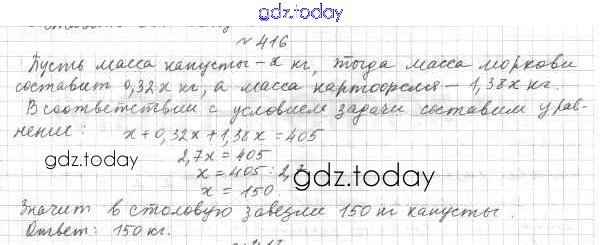 gdz.today
№ 416
Пусть масса капусты - x кг, тогда масса моркови
составит 0,32x кг, а масса картофеля - 1,38x кг.
В соответствии с условием задачи составим урав-
нение: x + 0,32x + 1,38x = 405
2,7x = 405
gdz.today
x = 405 : 2,7
gdz.today
x = 150
Значит в столовую завезли 150 кг капусты.
Ответ: 150 кг.